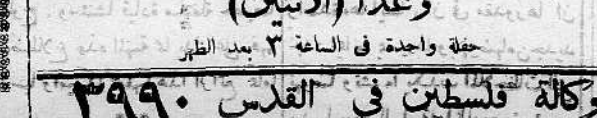 وغدا (الاثنين)
حفلة واحدة فى الساعة ٣ بعد الظهر
وكالة فلسطين فى القدس ٣٩٩٠